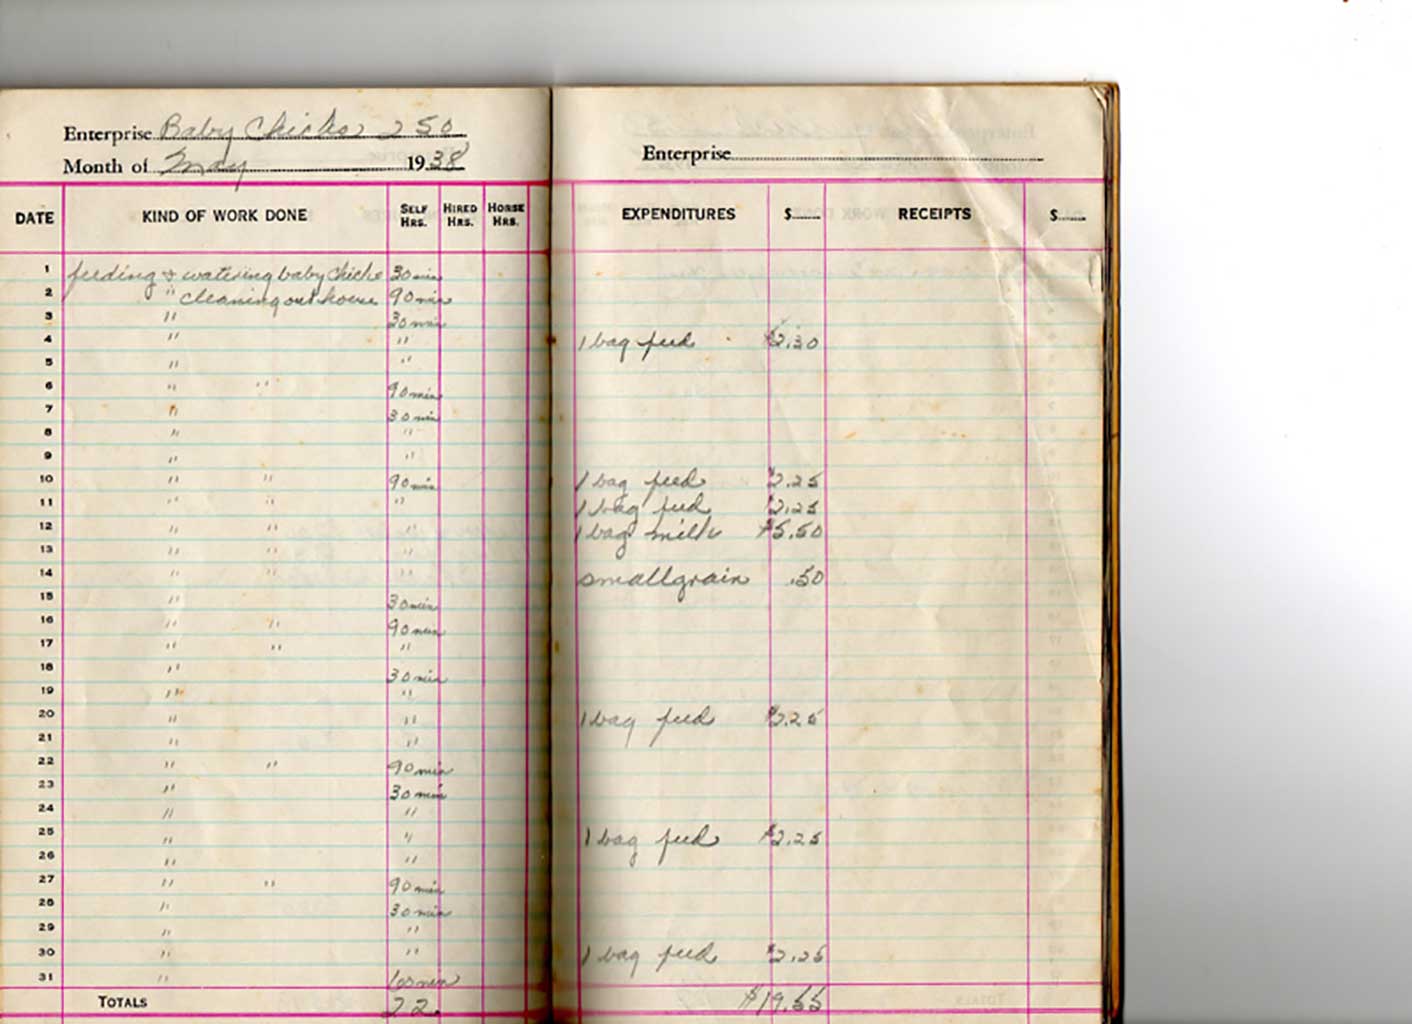 Enterprise Baby Chicks 250
Month of May 1938
Enterprise
DATE KIND OF WORK DONE SELF HRS. HIRED HRS. HORSE HRS. EXPENDITURES $ RECEIPTS $
1 feeding & watering baby chicks 30 min
2 " cleaning out house 90 min
3 " 30 min
4 " " 1 bag feed $2.30
5 " "
6 " " 90 min
7 " 30 min
8 " "
9 " "
10 " " 90 min 1 bag feed $2.25
11 " " " 1 bag feed $2.25
12 " " " 1 bag milk $5.50
13 " " "
14 " " " small grain .50
15 " 30 min
16 " " 90 min
17 " " "
18 " 30 min
19 " "
20 " " 1 bag feed $2.25
21 " "
22 " " 90 min
23 " 30 min
24 " "
25 " " 1 bag feed $2.25
26 " "
27 " " 90 min
28 " 30 min
29 " "
30 " " 1 bag feed $2.25
31 " 60 min
TOTALS 22. $19.55